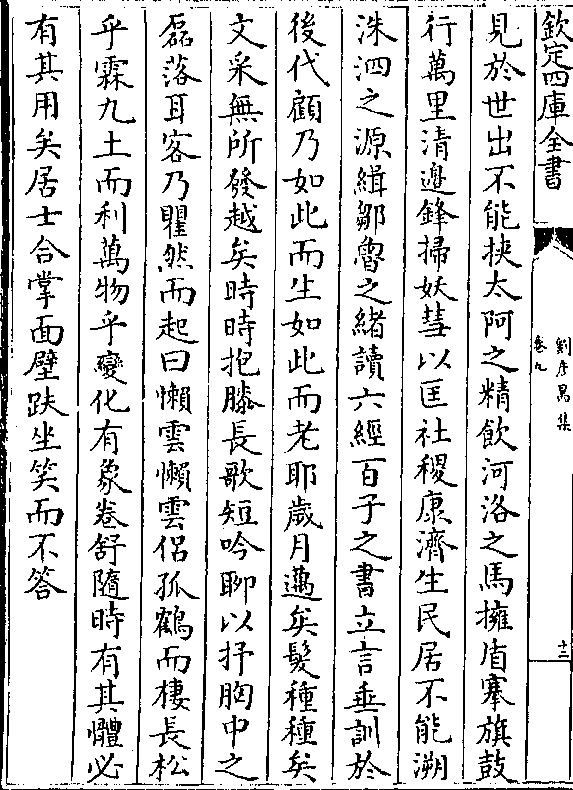 欽定四庫全書
劉彥昺集
卷九
十二
見於世出不能挾太阿之精飲河洛之馬擁盾搴旗鼓
行萬里清邊鋒掃妖彗以匡社稷康濟生民居不能溯
洙泗之源緝鄒魯之緒讀六經百子之書立言垂訓於
後代顧乃如此而生如此而老耶歲月邁矣髮種種矣
文采無所發越矣時時抱膝長歌短吟聊以抒胸中之
磊落耳客乃瞿然而起曰懶雲懶雲侣孤鶴而棲長松
乎霖九土而利萬物乎變化有象卷舒隨時有其體必
有其用矣居士合掌面壁趺坐笑而不答